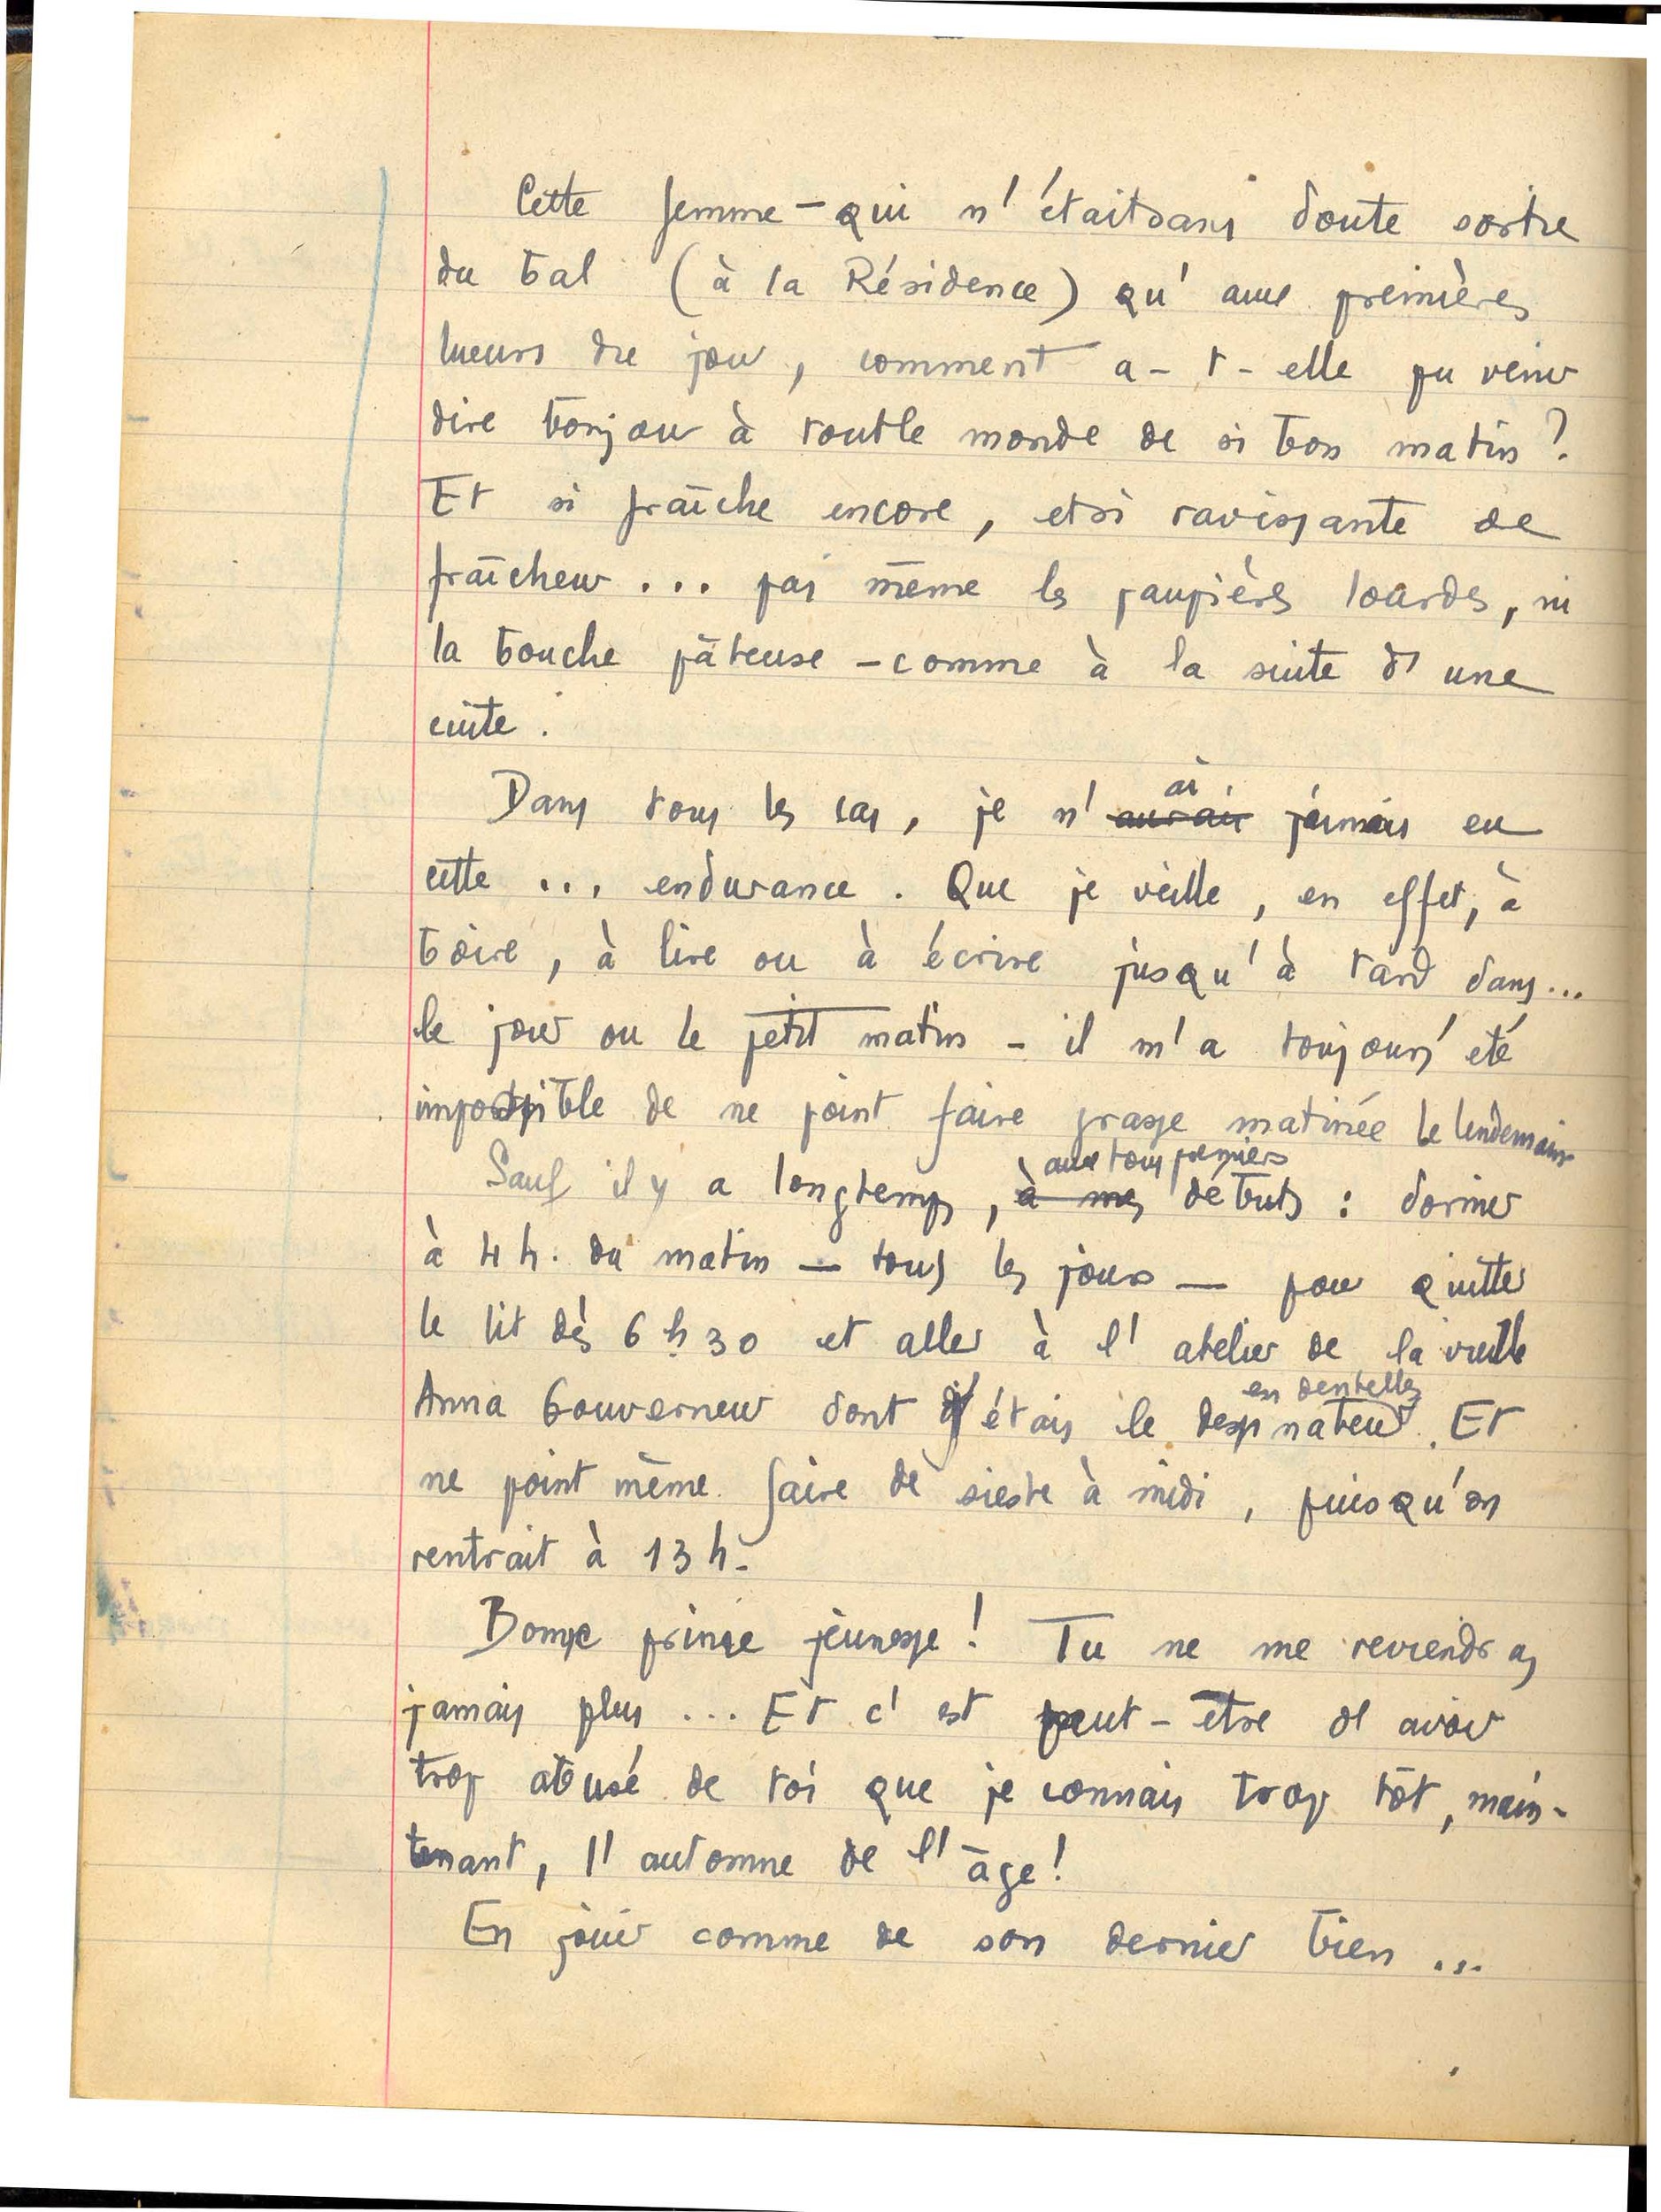 Cette femme – qui n'était sans doute sortie
du bal (à la Résidence) qu'aux premières
lueurs du jour, comment a-t-elle pu venir
dire bonjour à tout le monde de si bon matin ?
Et si fraîche encore, et si ravissante de
fraîcheur ... pas même les paupières lourdes, ni
la bouche pâteuse – comme à la suite d'une
cuite.
ai
Dans tous les cas, je n' aurais jamais eu
cette ... endurance. Que je veille, en effet, à
boire, à lire ou à écrire jusqu'à tard dans...
le jour ou le petit matin – il m'a toujours été
impossible de ne point faire grasse matinée le lendemain
aux tous premiers
Sauf il y a longtemps, à mes débuts : dormir
à 4 h. du matin — tous les jours — pour quitter
le lit dès 6 h 30 et aller à l'atelier de la vieille
en dentelles
Anna Gouverneur dont j'étais le dessinateur. Et
ne point même faire de sieste à midi, puisqu'on
rentrait à 13 h.
prime jeunesse ! Tu ne me reviendras
jamais plus ... Et c'est peut-être d'avoir
trop abusé de toi que je connais trop tôt, main-
tenant, l'automne de l'âge !
En jouir comme de son dernier bien ...